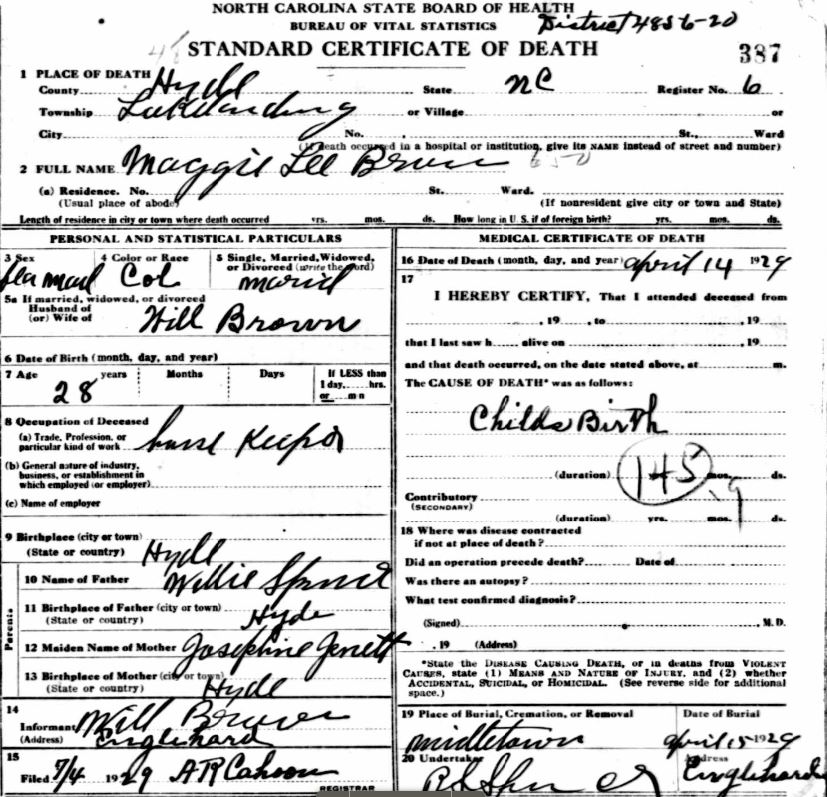 NORTH CAROLINA STATE BOARD OF HEALTH
BUREAU OF VITAL STATISTICS
District 4856-20
STANDARD CERTIFICATE OF DEATH
48
387
1 PLACE OF DEATH
County Hyde State NC Register No. 6
Township or Village or
City No. St., Ward
(If death occurred in a hospital or institution, give its NAME instead of street and number)
2 FULL NAME Maggie Lee Brown 650
(a) Residence. No. St. Ward.
(Usual place of abode) (If nonresident give city or town and State)
Length of residence in city or town where death occurred yrs. mos. ds. How long in U. S. if of foreign birth? yrs. mos. ds.
PERSONAL AND STATISTICAL PARTICULARS
3 Sex 4 Color or Race 5 Single, Married, Widowed, or Divorced (write the word)
Col
5a If married, widowed, or divorced
Husband of
(or) Wife of Will Brown
6 Date of Birth (month, day, and year)
7 Age years Months Days If LESS than
1 day, hrs.
or m n
28
8 Occupation of Deceased
(a) Trade, Profession, or
particular kind of work
(b) General nature of industry,
business, or establishment in
which employed (or employer)
(c) Name of employer
9 Birthplace (city or town)
(State or country) Hyde
Parents
10 Name of Father Willie
11 Birthplace of Father (city or town)
(State or country) Hyde
12 Maiden Name of Mother Josephine
13 Birthplace of Mother (city or town)
(State or country) Hyde
14
Informant Will
(Address) Englehard
15
Filed 7/4 1929 A R Cahoon
REGISTRAR
MEDICAL CERTIFICATE OF DEATH
16 Date of Death (month, day, and year) april 14 1929
17
I HEREBY CERTIFY, That I attended deceased from
, 19 , to , 19
that I last saw h alive on , 19
and that death occurred, on the date stated above, at m.
The CAUSE OF DEATH* was as follows:
Childs Birth
(duration) 145 mos. ds.
Contributory
(SECONDARY)
(duration) yrs. mos. ds.
18 Where was disease contracted
if not at place of death?
Did an operation precede death? Date of
Was there an autopsy?
What test confirmed diagnosis?
(Signed) , M. D.
, 19 (Address)
*State the DISEASE CAUSING DEATH, or in deaths from VIOLENT
CAUSES, state (1) MEANS AND NATURE OF INJURY, and (2) whether
ACCIDENTAL, SUICIDAL, or HOMICIDAL. (See reverse side for additional
space.)
19 Place of Burial, Cremation, or Removal Date of Burial
middletown april 15 1929
20 Undertaker Address
Englehard